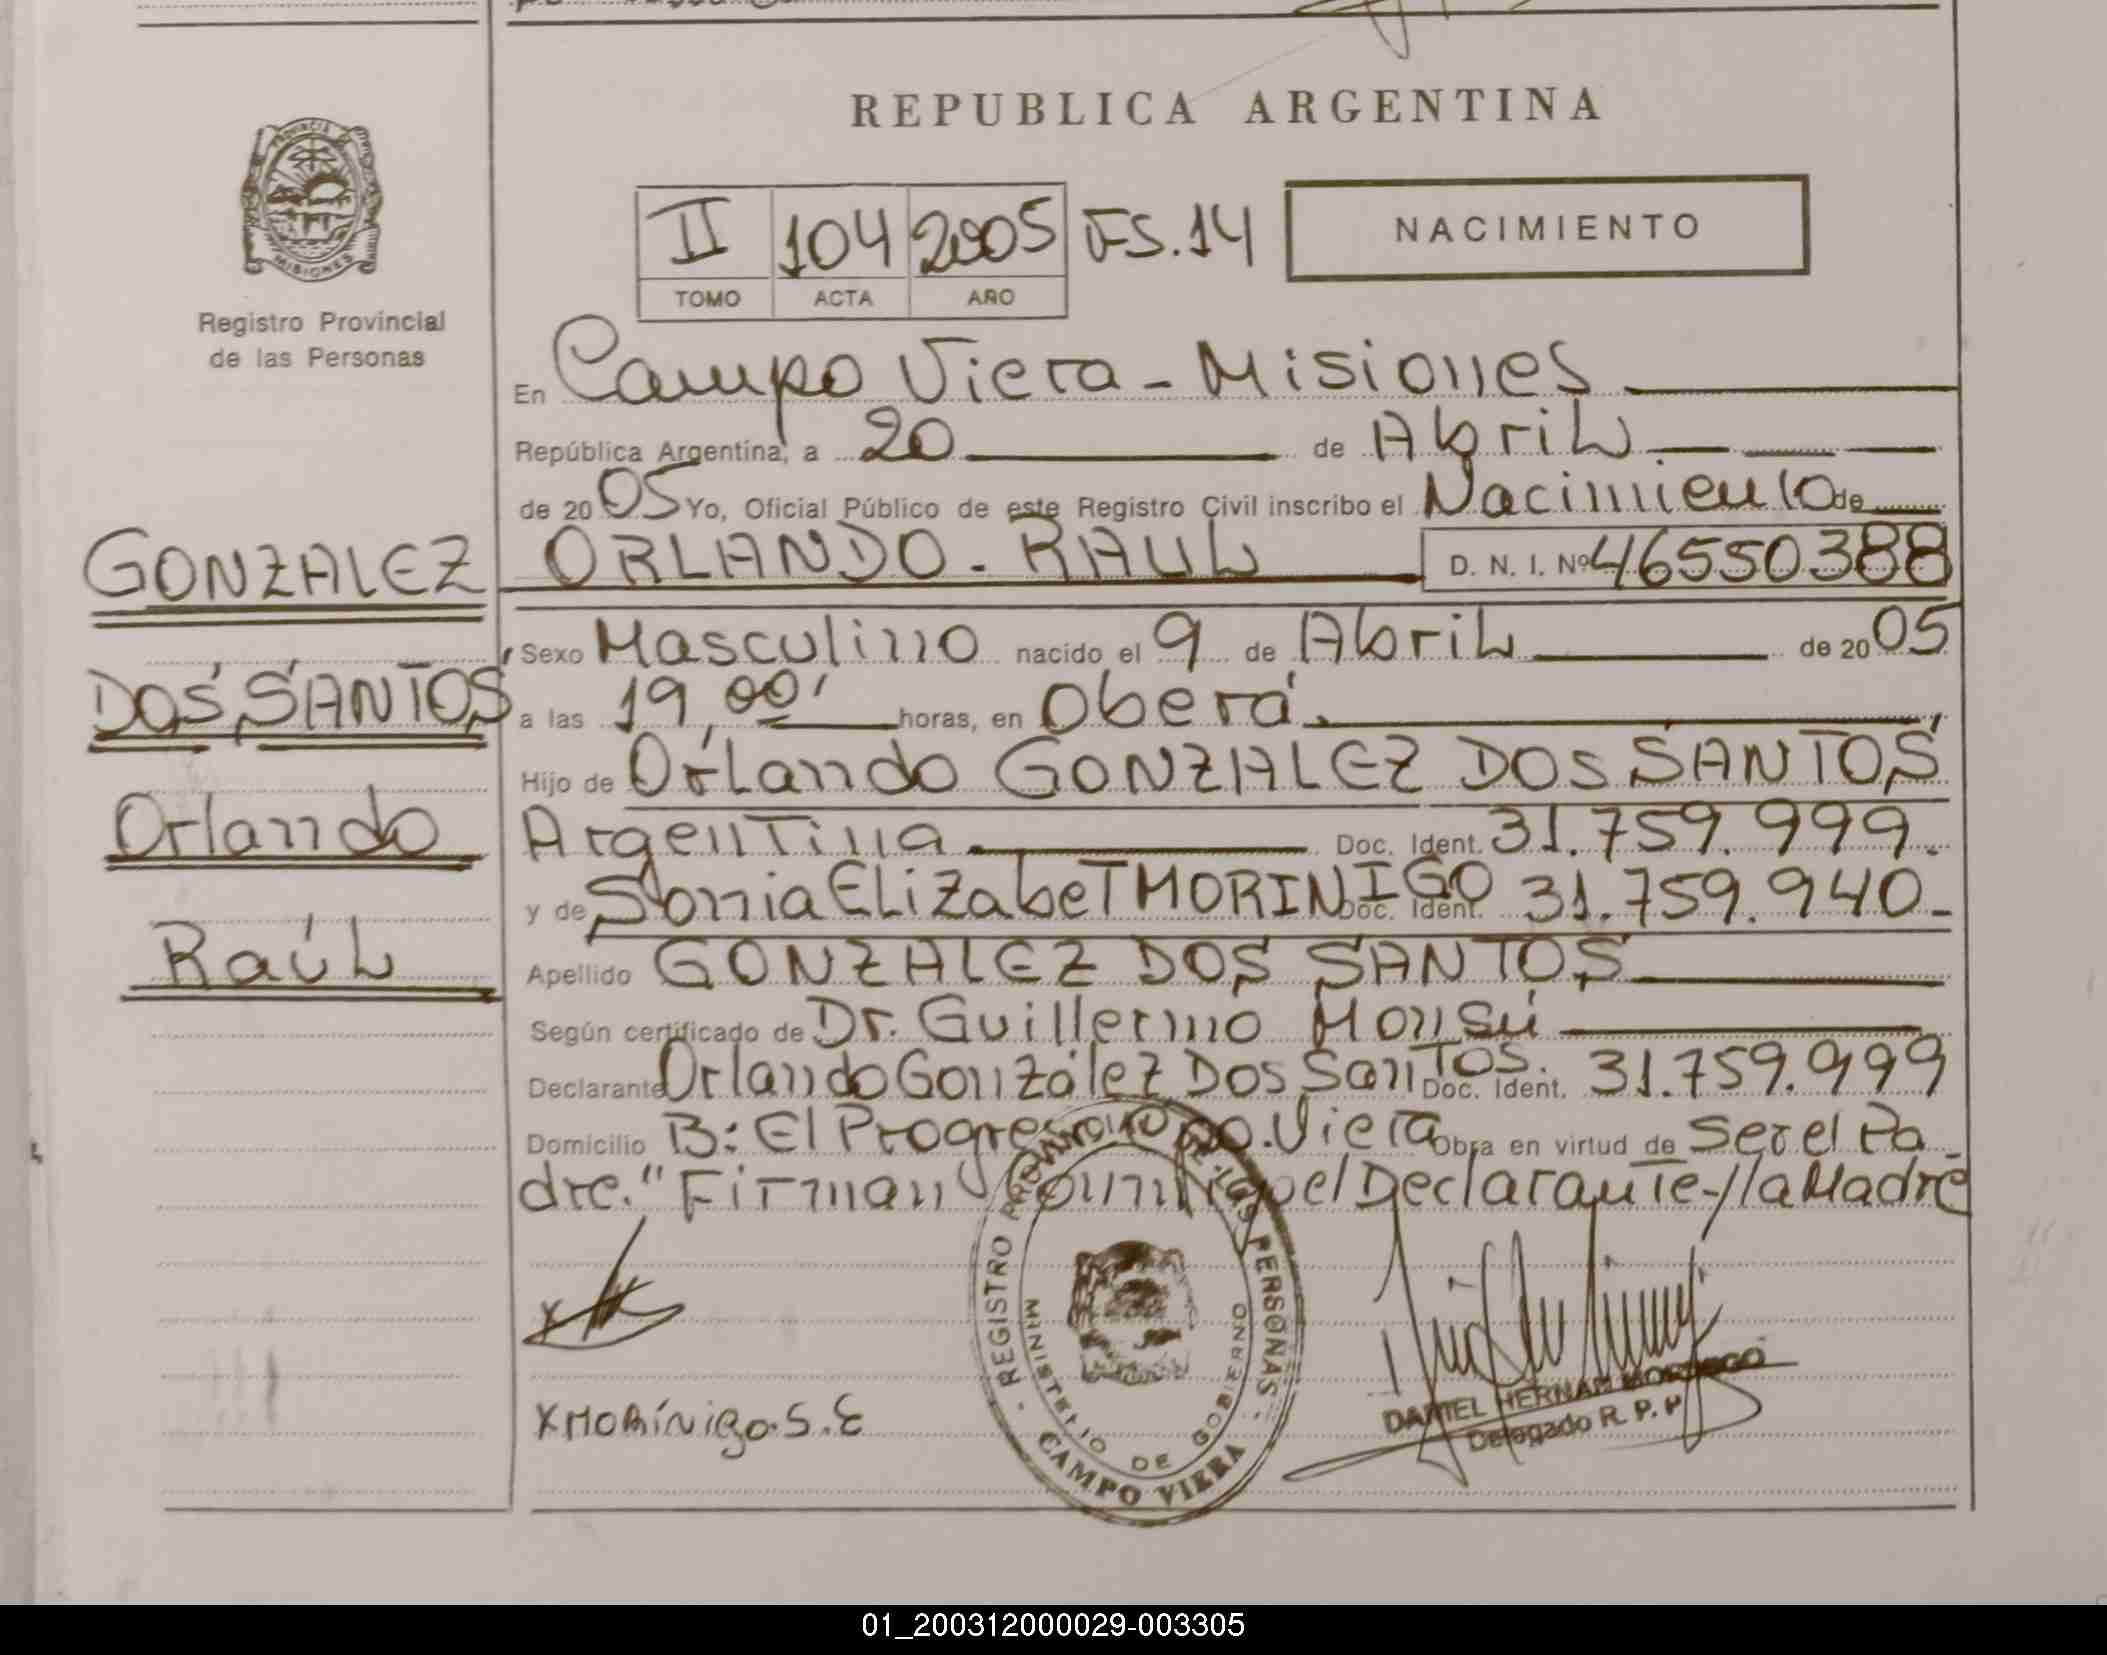 REPUBLICA ARGENTINA
PROVINCIA DE MISIONES
Registro Provincial
de las Personas
II 104 2005 FS.14
TOMO ACTA AÑO
NACIMIENTO
En Campo Viera - Misiones
República Argentina, a 20 de Abril
de 2005 Yo, Oficial Público de este Registro Civil inscribo el Nacimiento de
ORLANDO - RAUL D. N. I. Nº 46550388
GONZALEZ
DOS SANTOS
Orlando
Raúl
Sexo Masculino nacido el 9 de Abril de 2005
a las 19,00' horas, en Oberá.
Hijo de Orlando GONZALEZ DOS SANTOS
Argentina Doc. Ident. 31.759.999.
y de Sonia ELizabeT MORINIGO Doc. Ident. 31.759.940-
Apellido GONZALEZ DOS SANTOS
Según certificado de Dr. Guillermo Monsú
Declarante Orlando González Dos Santos. Doc. Ident. 31.759.999
Domicilio B: El Progreso Cpo. Viera Obra en virtud de Ser el Pa-
dre." Firman Conmigo el Declarante-/la Madre
X MORíNigo.S.E
REGISTRO PROVINCIAL DE LAS PERSONAS
MINISTERIO DE GOBIERNO
CAMPO VIERA
DANIEL HERNAN
Delegado R. P. P
01_200312000029-003305